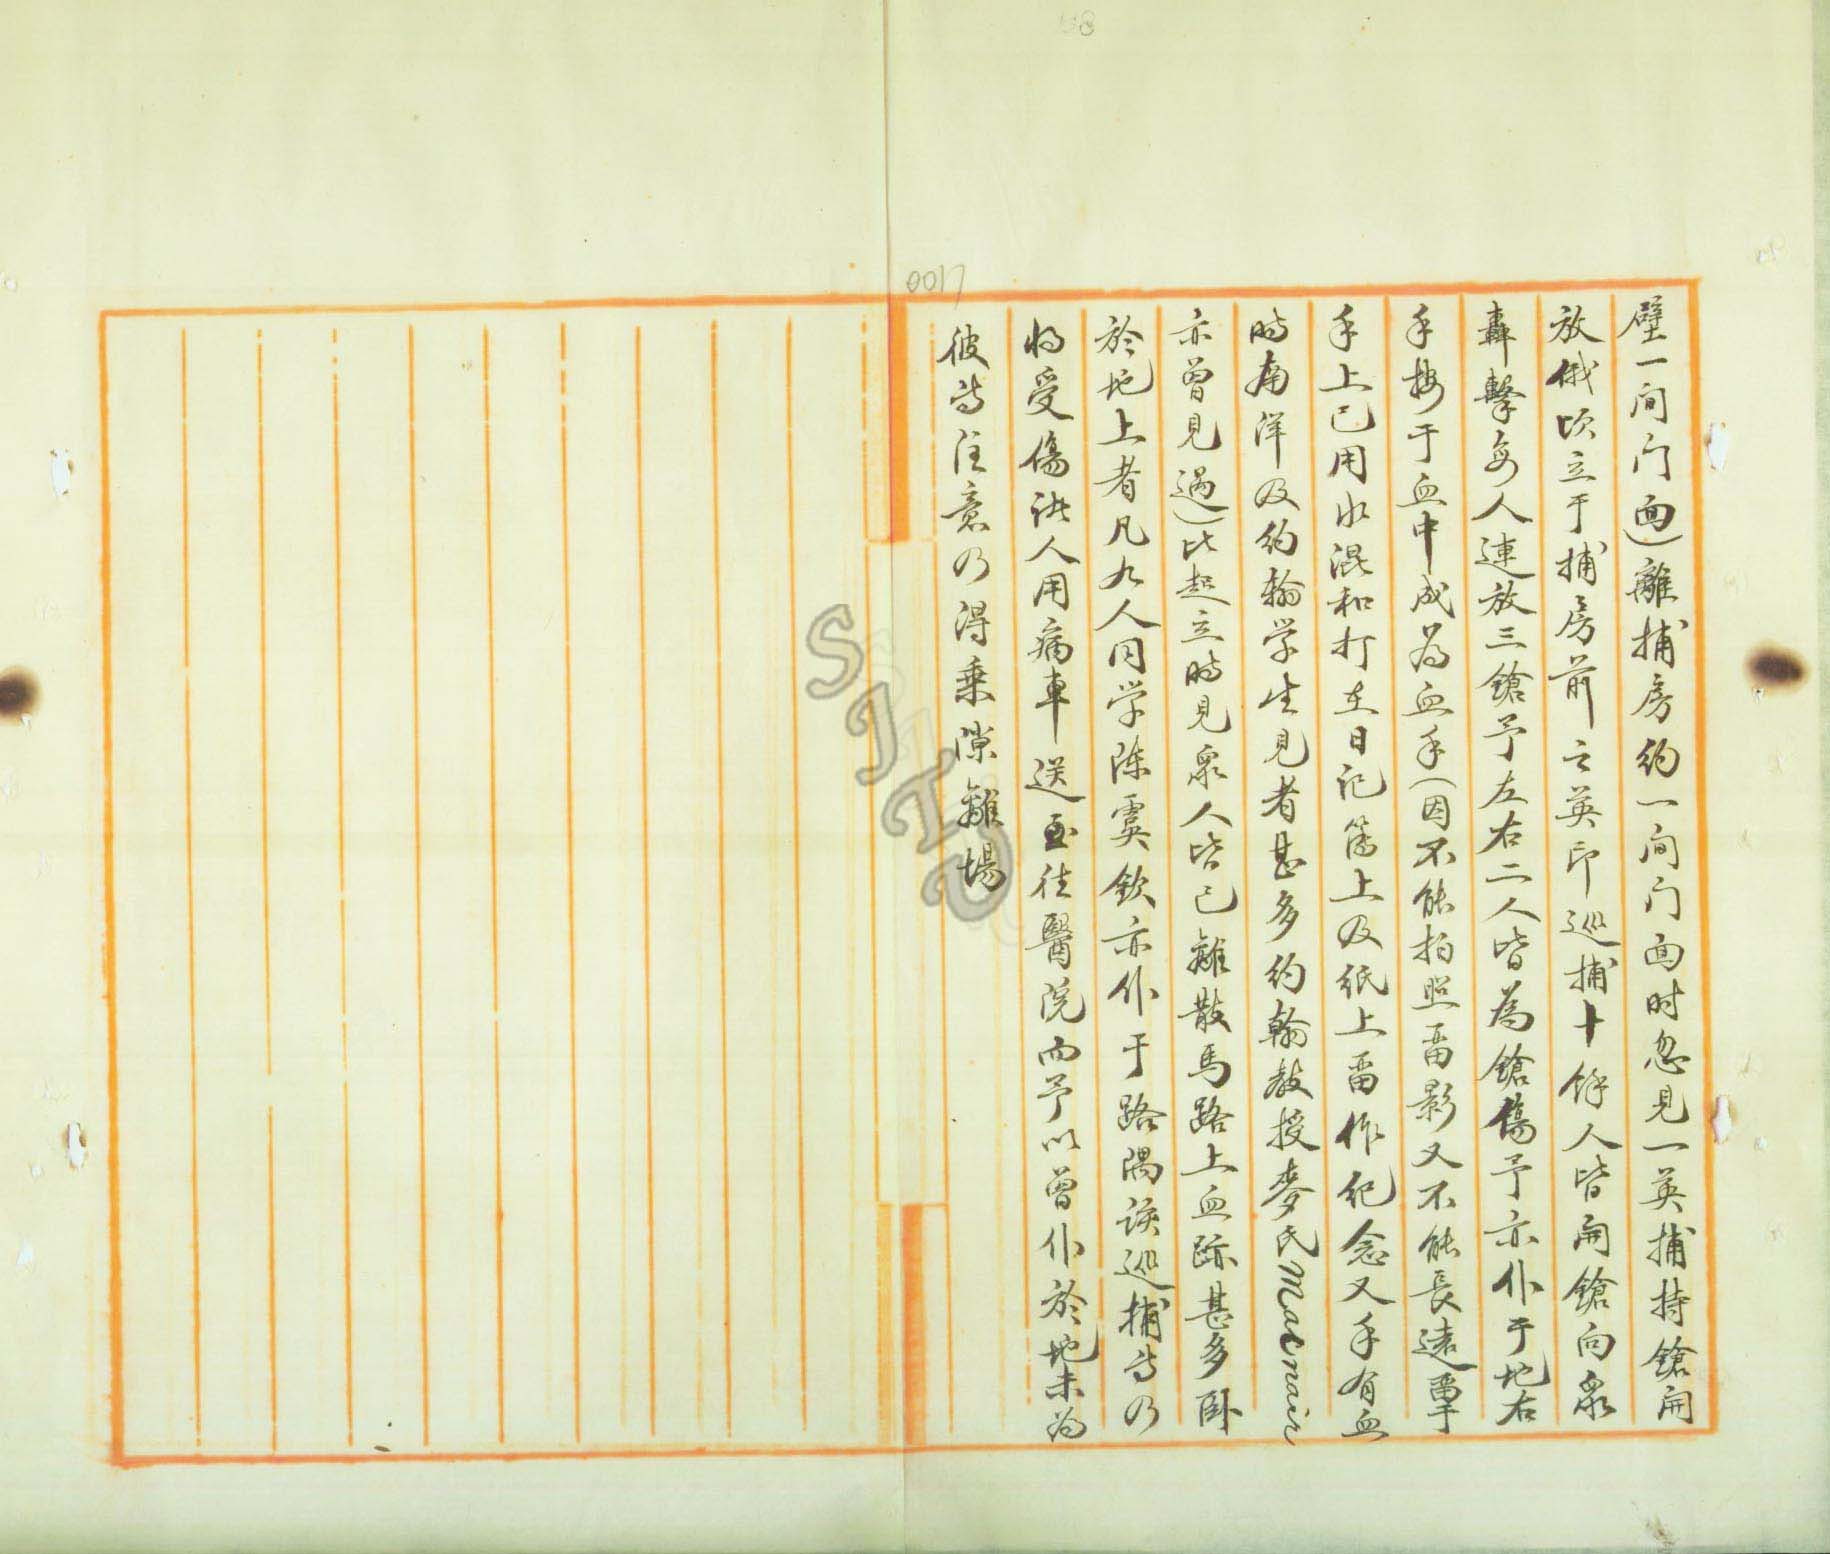 壁一间门面)離捕房約一间门面时忽見一英捕持鎗開
放俄頃立于捕房前之英印巡捕十餘人皆開鎗向衆
轟擊每人連放三鎗予左右二人皆為鎗傷予亦仆于地右
手按于血中成為血手(因不能拍照畱影又不能長遠畢
手上已用水混和打在日记簿上及纸上畱作纪念又手有血
時南洋及約翰学生見者甚多約翰教授麥氏Macnair
亦曾見過)比起立時見衆人皆已離散馬路上血跡甚多卧
於地上者凡九人同学陈虞欽亦仆于路隅該巡捕等乃
将受傷诸人用病車送至往醫院而予以曾仆於地未為
彼等注意乃得乗隙離場
0017
SJTU